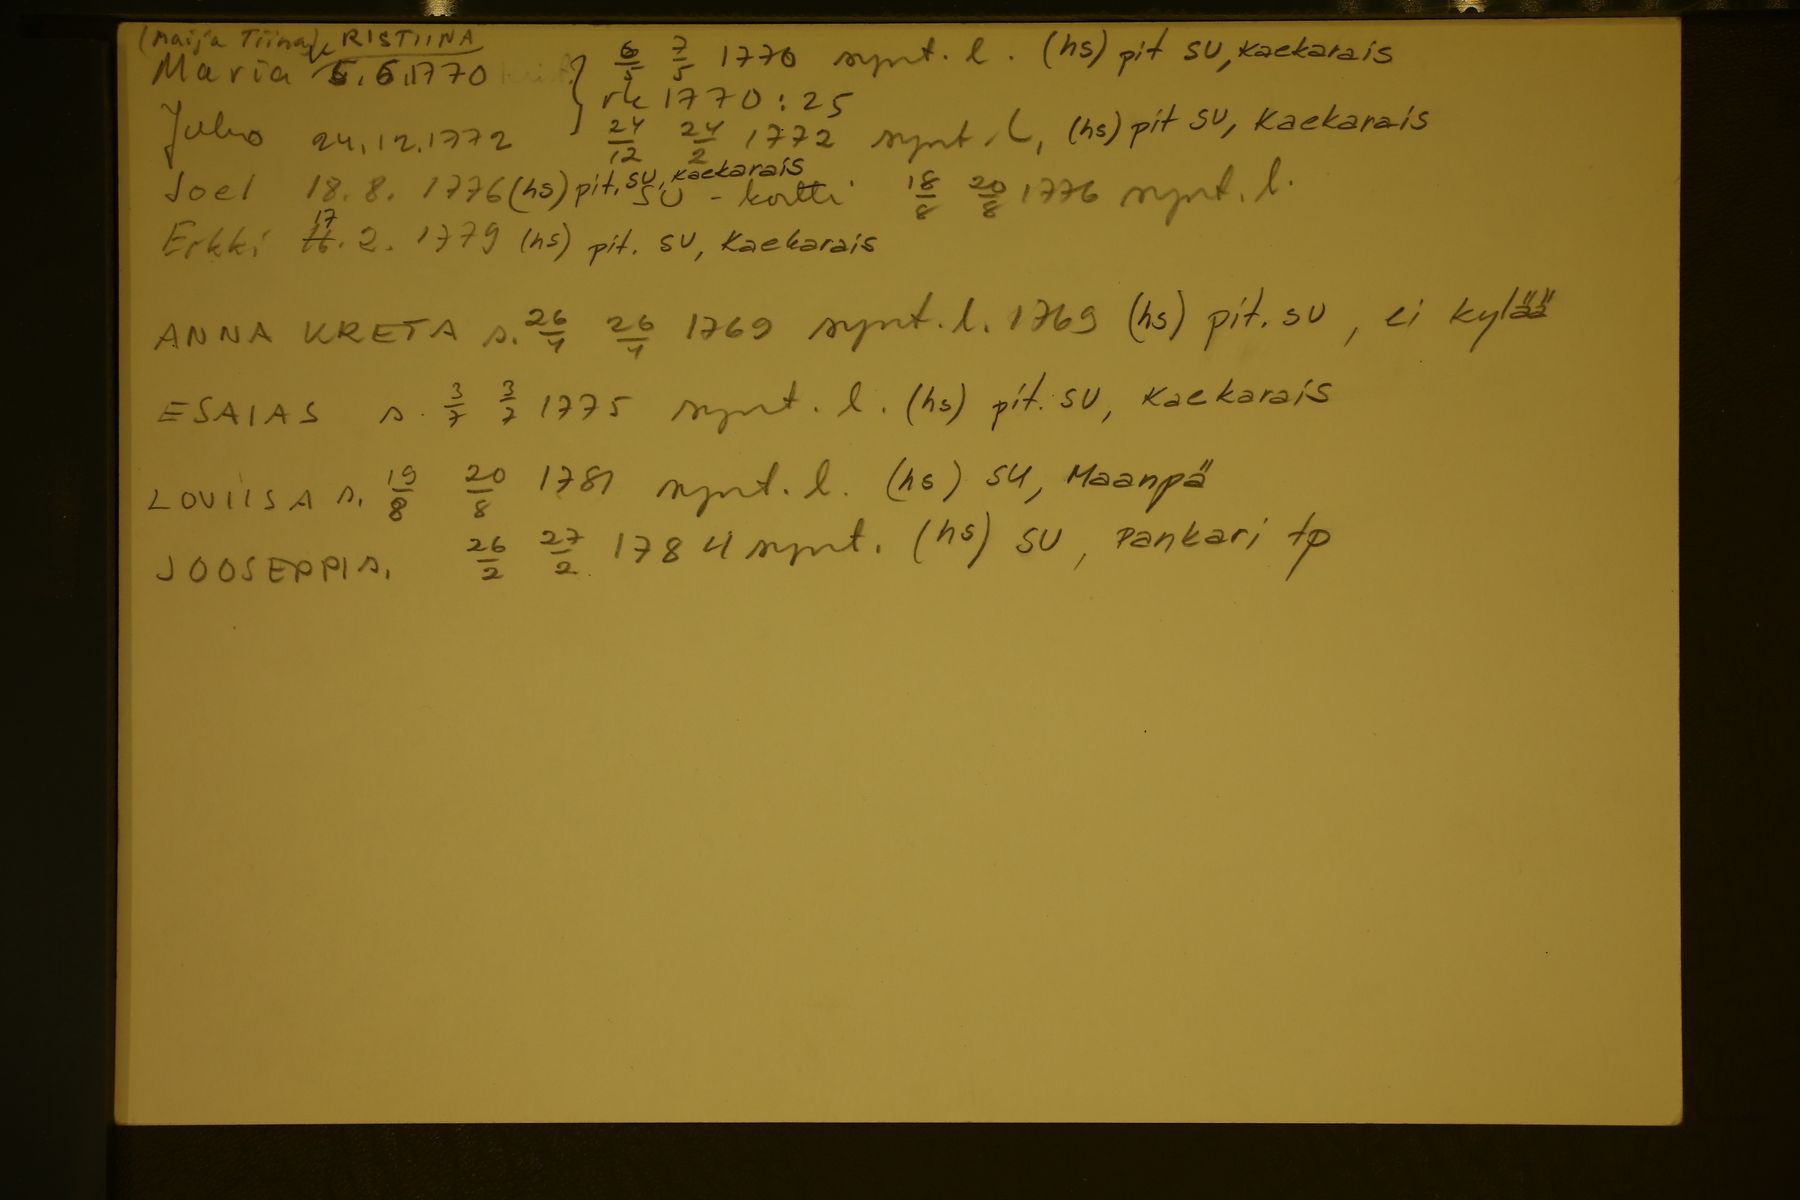 (Maija Tiina) KRISTIINA
Maria 6.6.1770 6/5 7/5 1770 synt. l. (hs) pit SU, Kaekarais
rk 1770:25
Juho 24.12.1772 24/12 24/2 1772 synt. l, (hs) pit SU, Kaekarais
Joel 18.8.1776 (hs) pit. SU, Kaekarais SU-kortti 18/8 20/8 1776 synt. l.
Erkki 17.2.1779 (hs) pit. SU, Kaekarais
ANNA KRETA s. 26/4 26/4 1769 synt. l. 1769 (hs) pit. SU, ei kylää
ESAIAS s. 3/7 3/7 1775 synt. l. (hs) pit. SU, Kaekarais
LOVIISA s. 19/8 20/8 1781 synt. l. (hs) SU, Maanpä
JOOSEPPI s. 26/2 27/2 1784 synt. (hs) SU, Pankari tp